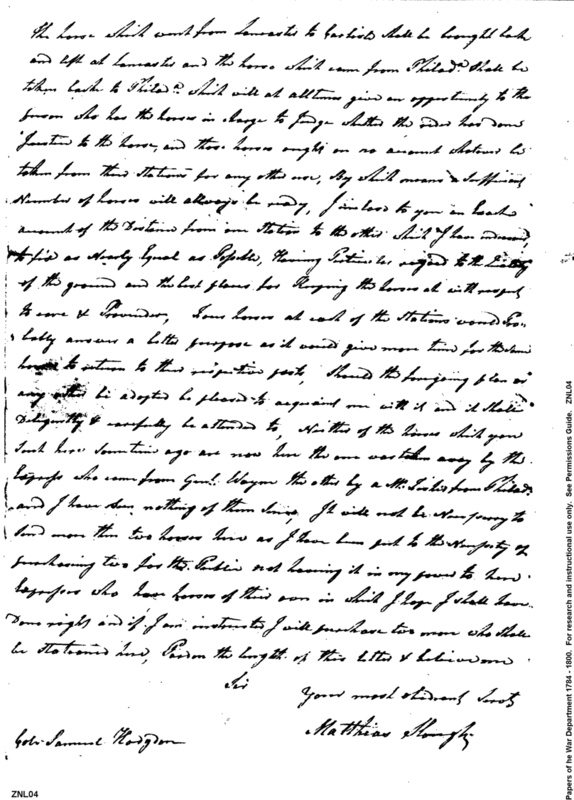 The horse which went from Lancaster to Carlisle shall be brought back
and left at Lancaster and the horse which came from Philad.ª shall be
taken back to Philad.ª which will at all times give an opportunity to the
person who has the horses in charge to Judge whether the rider has done
Justice to the horse, and those horses ought on no account whatever be
taken from their Stations for any other use, By which means a sufficient
Number of horses will allways be ready, I inclose to you an
account of the Distance from one Station to the other which I have endeavored
to fix as Nearly Equal as Possible, Having Particular regard to the
of the ground and the best places for Keeping the horses at with respect
to care & Provender, Four horses at each of the Stations would Pro-
bably answer a better purpose as it would give more time for the same
horse to return to their respective posts, Should the foregoing plan or
any other be adopted be pleased to acquaint me with it and it shall
Deligently & carefully be attended to, Neither of the horses which you
here sometime ago are now here the one was taken away by the
Express who came from Genl. Wayne the other by a Mr. from Philad.ª
and I have seen nothing of them since, It will not be Necessary to
send more than two horses here as I have been put to the Necessity of
purchasing two for the Public not having it in my power to
Expresses who have horses of their own in which I hope I shall have
Done right and if I am instructed I will purchase two more who shall
be stationed here, Pardon the length of this letter & believe me
Sir
Your most obedient Servt
Matthias Slough
Colo. Samuel Hodgdon
ZNL04
Papers of he War Department 1784 - 1800. For research and instructional use only. See Permissions Guide. ZNL04